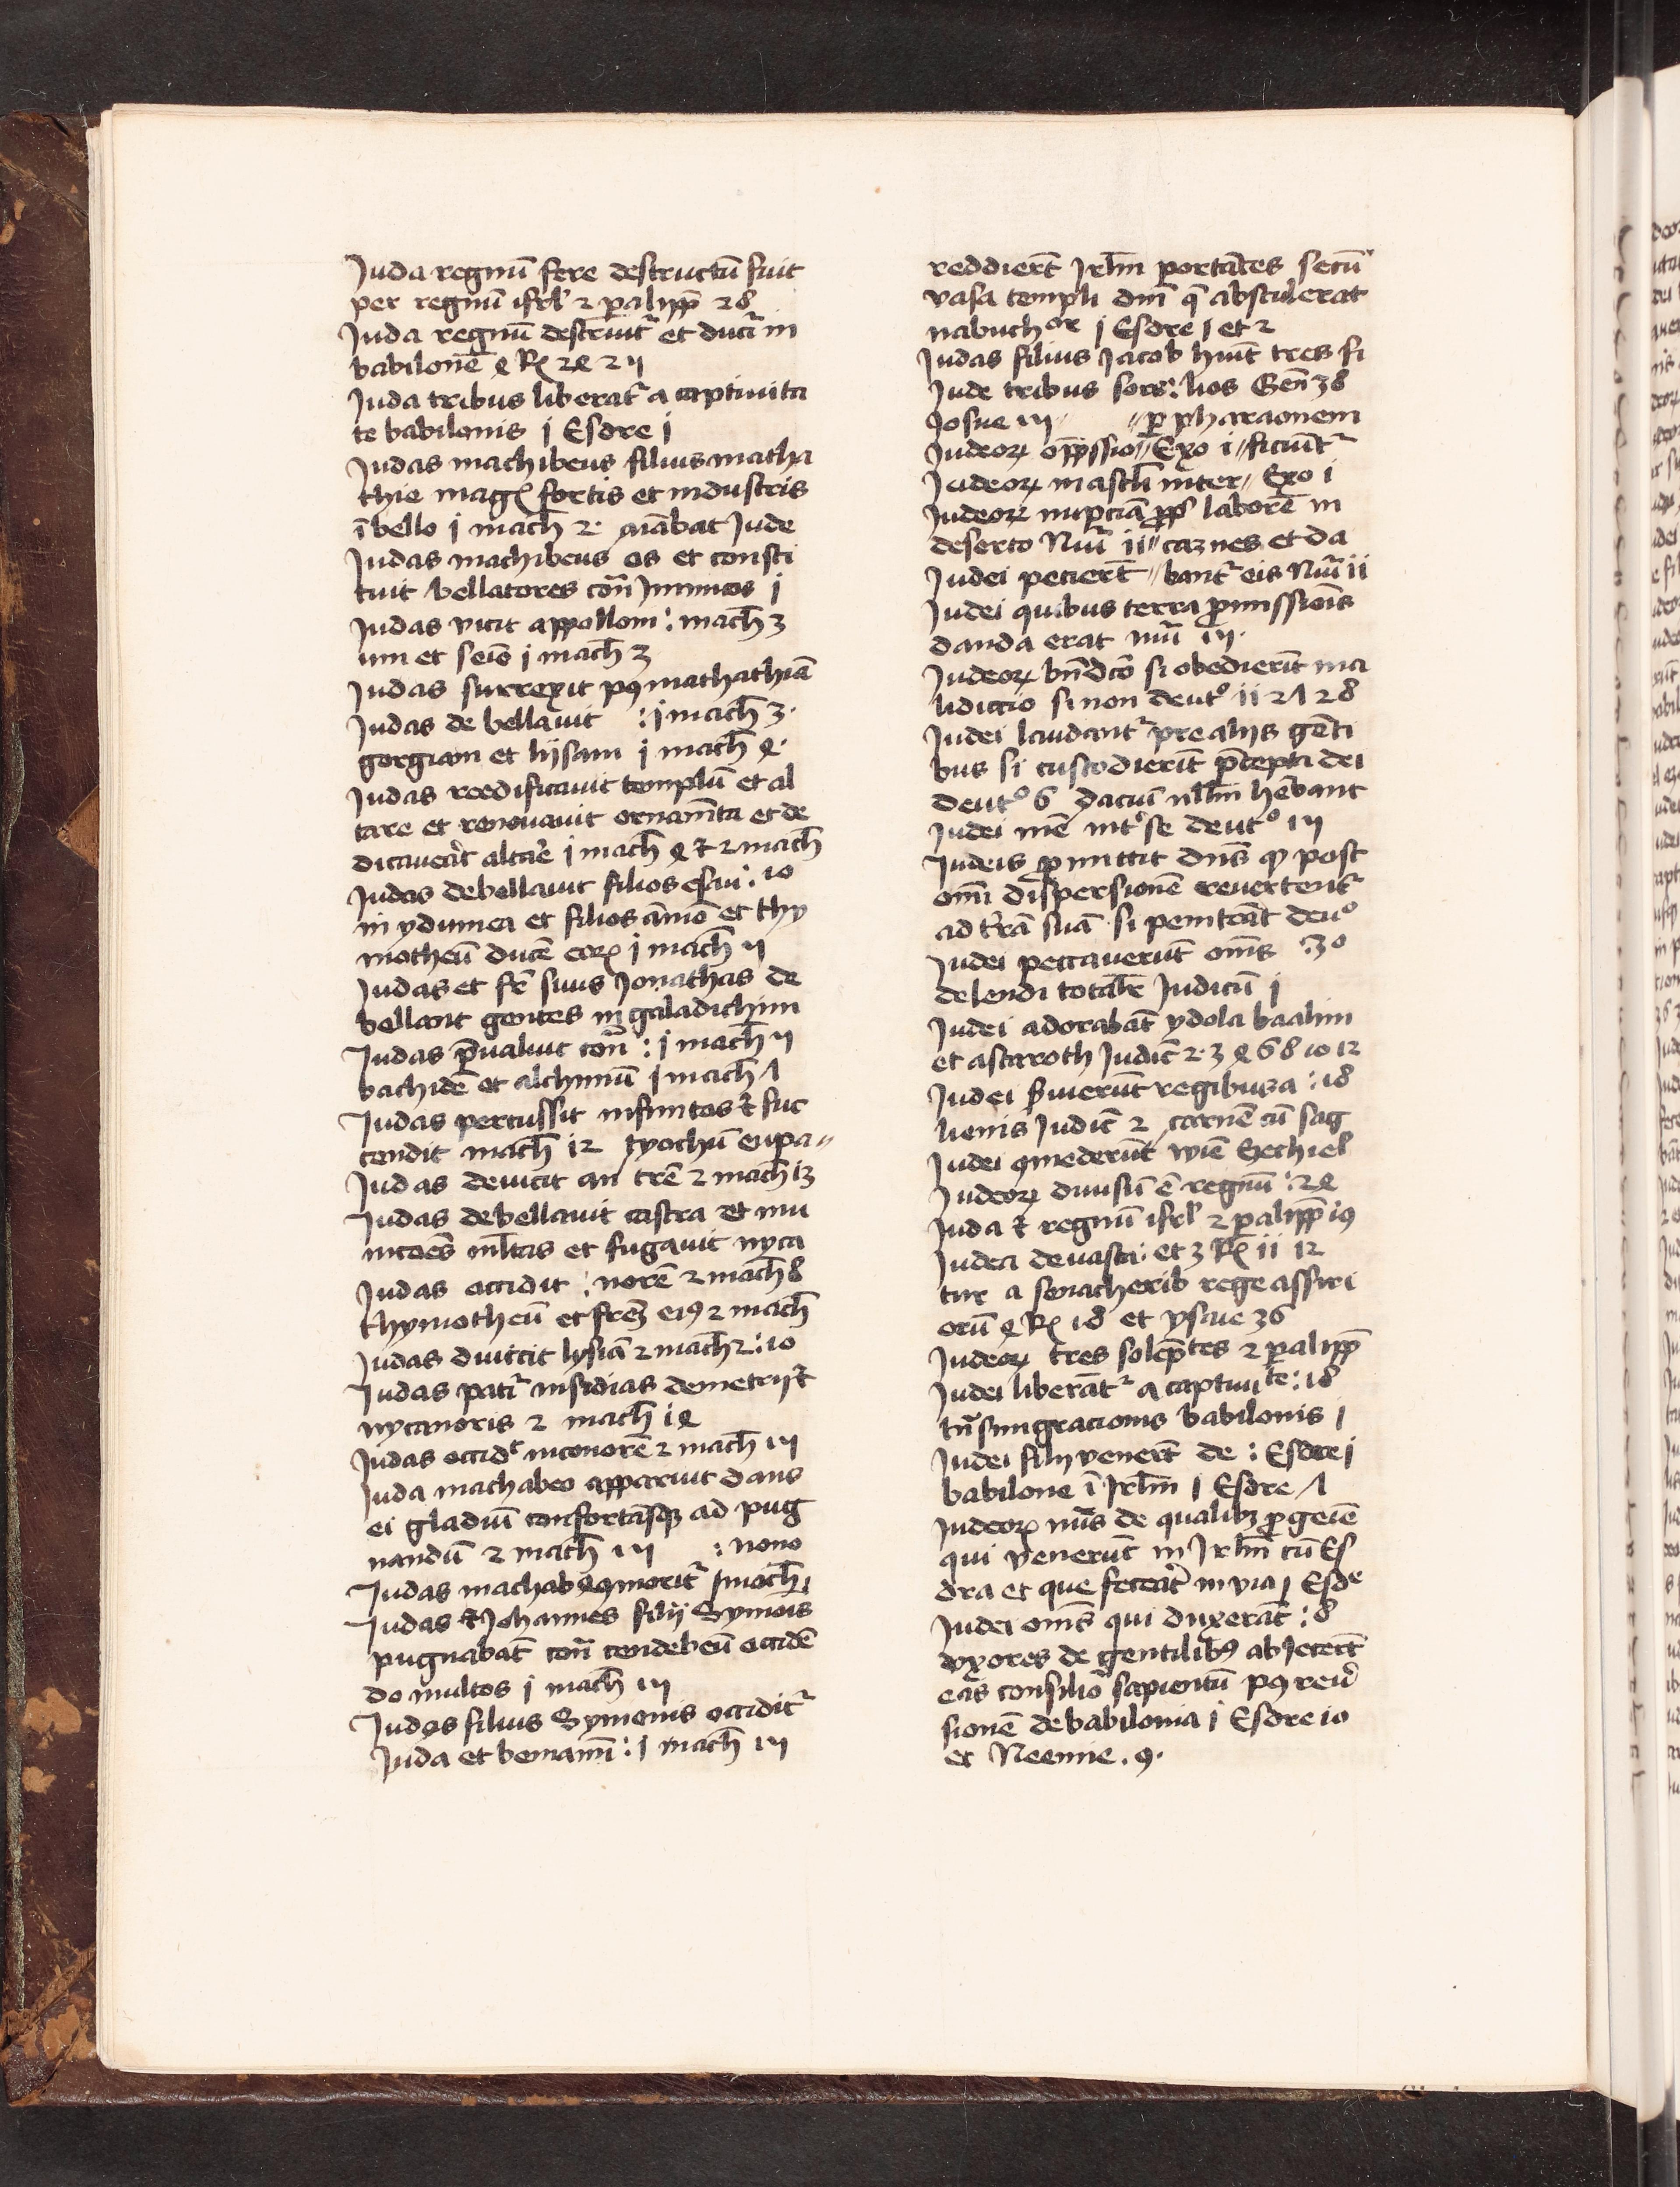 Juda regnū fere destructū fuit
per regnū isrl' 2 paralipp̄ 28
Juda regnū destruit᷑ et ducit᷑ in
babilonē 4 Rꝫ 24 25
Juda tribus liberat᷑ a captiuita
te babilonis j Esdre j
Judas machibeus filius matha
thie magꝫ fortis et industris
ī bello j mach̄ 2 · mābat Jude
Judas machibeus os et consti
tuit bellatores cōn̄ Inimicos j
Judas vicit appolloni : mach̄ 3
um et seiō j mach̄ 3
Judas surrexit pꝯ mathathiā
Judas de bellauit : j mach̄ 3 ·
gorgiam et lijsam j mach̄ 4 ·
Judas reedificauit templū et al
tare et renouauit ornam̄ta et de
dicauerāt altare j mach̄ 4 ⁊ 2 mach̄
Judas debellauit filios esau : 10
in ydumea et filios āmō et thy
motheū ducē eoꝝ j mach̄ 5
Judas et fr̄ suus Jonathas de
bellant gentes in galadithim
Judas p̄ualuit cōn̄ : j mach̄ 5
bachidē et alchimū j mach̄ 7
Judas percussit infinitos ⁊ suc
cendit mach̄ 12 tyochū eupa〃
Judas deuicit an trē 2 mach̄ 13
Judas debellauit castra et mu
nicōes ml̄tas et fugauit nyca
Judas occidit : norē 2 mach̄ 8
thymotheū et frēꝫ eiꝯ 2 mach̄
Judas diuicit lysiā 2 mach̄ 2 : 10
Judas patit᷑ insidias demetrij ⁊
nycanoris 2 mach̄ 14
Judas occidᵗ niconorē 2 mach̄ 15
Juda machabeo apparuit dans
ei gladiū confortāsqꝫ ad pug
nandū 2 mach̄ 15 : nono
Judas machabeꝯ morit᷑ j mach̄
Judas ⁊ Johannes filij Symōis
pugnabāt cōn̄ cendebeū occidē
do multos j mach̄ 15
Judas filius Symonis occidit᷑
Juda et beniamī : j mach̄ 15
reddierūt Jrl̄m portātes secū
vasa templi dn̄i q̄ abstulerat
nabuchᵒʳ j Esdre j et 2
Judas filius Jacob hūit tres fi
Jude tribus sors : lios Gen̄ 38
Josue 15 〃 p pharaonem
Judeoꝝ opp̄ssio 〃 Exo 1 〃 ficiūt᷑
Judeoꝝ masclī inter 〃 Exo i
Judeoꝝ propꝭ laborē in
deserto Nūi ii 〃 carnes et da
Judei petierūt 〃 bant᷑ eis Nūi ii
Judei quibus terra promissiōis
danda erat nūi 15 ·
Judeoꝝ bn̄dcō si obedierīt ma
lidictio si non deutᵒ ii 27 28
Judei laudant᷑ pre alijs gēti
bus si custodierīt p̄cepta dei
deutᵒ 6 pacuī nll̄m hēbant
Judei inē intᵉ se deutᵒ 15
Judeis promittit dn̄s qꝫ post
om̄i dispersionē reuertent᷑
ad t᷑rā suā si peniteāt deuᵒ
Judei peccauerūt om̄s : 30
delendi totalr̄ Judicū j
Judei adorabāt ydola baalim
et astaroth Judic̄ 2 · 3 4 6 8 10 12
Judei ẜuierūt regibus a : 18
lienis Judic̄ 2 carnē cū sag
Judei ꝯmederūt wiē Sechiel
Judeoꝝ diuisū ē regnū : 24
Juda ⁊ regnū isrl' 2 paralipp̄ 19
Judea deuasta : et 3 Rꝫ ii 12
tur a senacherib rege assiri
orū 4 Rꝫ 18 et ysaie 36
Judeoꝝ tres solēp̄tes 2 paralipp̄
Judei liberāt᷑ a captiuiᵗᵉ : 18
tn̄smigracionis babilonis j
Judei filij venerūt de : Esdre j
babilone ī Jrl̄m j Esdre 7
Judeoꝝ nūs de qualibꝫ progeīe
qui venerūt in Jrl̄m cū Es
dra et que fecerāt in via j Esdᵉ
Judei om̄s qui duxerāt : 8
vxores de gentilibꝯ abiecerūt
eas consilio sapientū pꝯ reuer
sionē de babilonia j Esdre 10
et Neemie . 9 ·